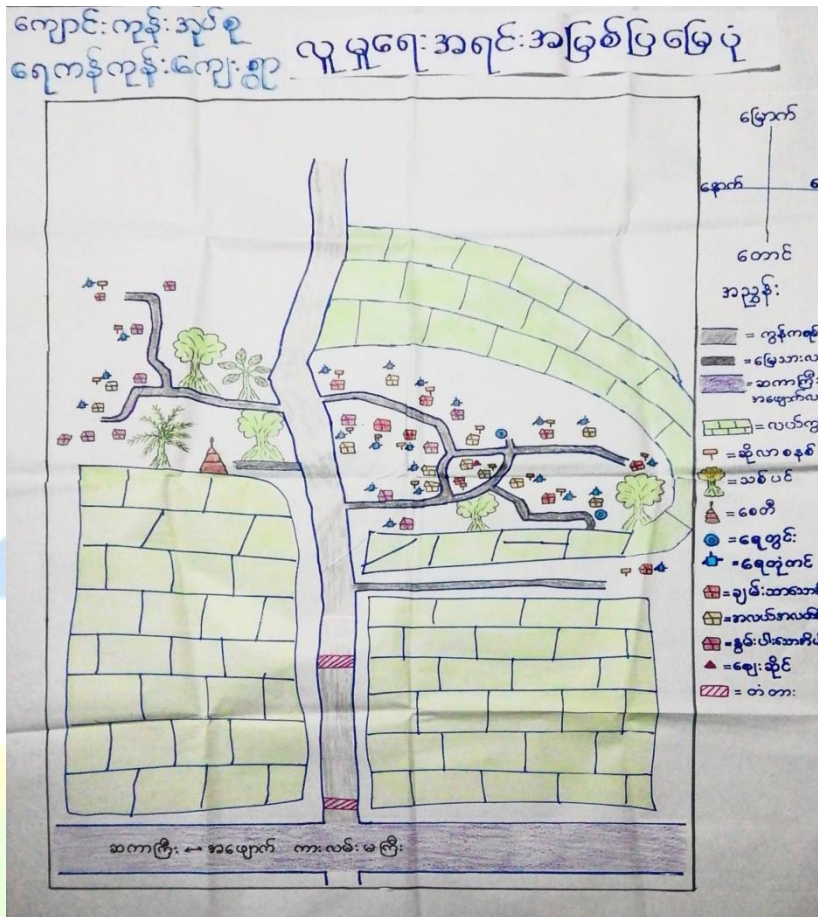 ကျောင်းကုန်းအုပ်စု
ရေကန်ကုန်းကျေးရွာ
လူမှုရေးအရင်းအမြစ်ပြမြေပုံ
မြောက်
နောက်
တောင်
အညွှန်း
= ကွန်ကရစ်
= မြေသားလ
= ဆကာကြီး
အဖျောက်လ
= လယ်ကွ
= ဆိုလာစနစ်
= သစ်ပင်
= စေတီ
= ရေတွင်း
= ရေတုံကင်
= ချမ်းသာသော
= အလယ်အလတ်
= နွမ်းပါးသော
= ဈေးဆိုင်
= တံတား
ဆကာကြီး ↔ အဖျောက် ကားလမ်းမကြီး